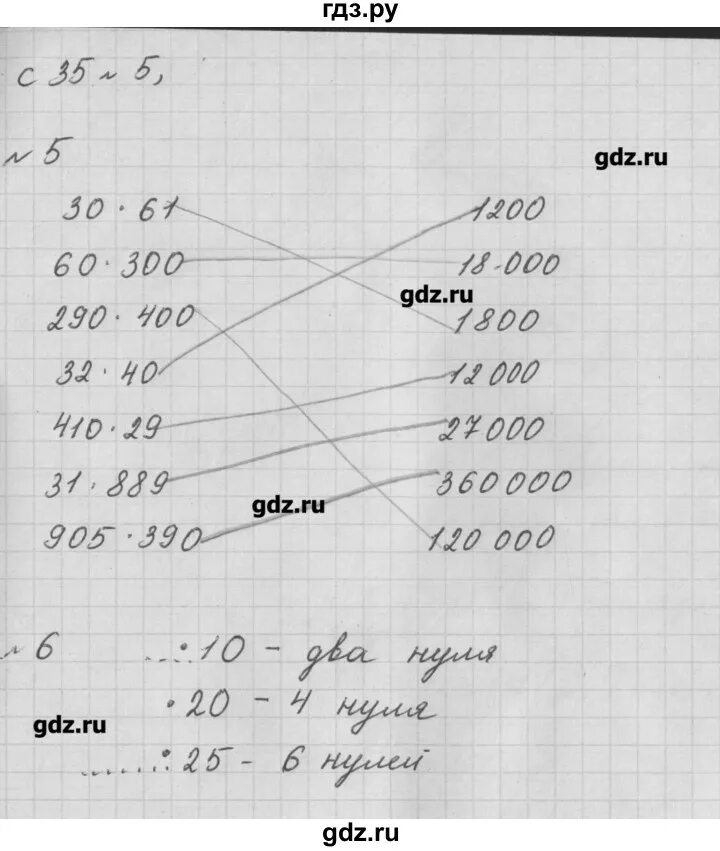 гдз.ру
с 35 № 5,
№ 5
gdz.ru
30 · 61 1200
60 · 300 18·000
gdz.ru
290 · 400 1800
32 · 40 12 000
410 · 29 27 000
31 · 889 360 000
gdz.ru
905 · 390 120 000
№ 6 ....:10 - два нуля
·20 - 4 нуля
gdz.ru
.......: 25 - 6 нулей
gdz.ru